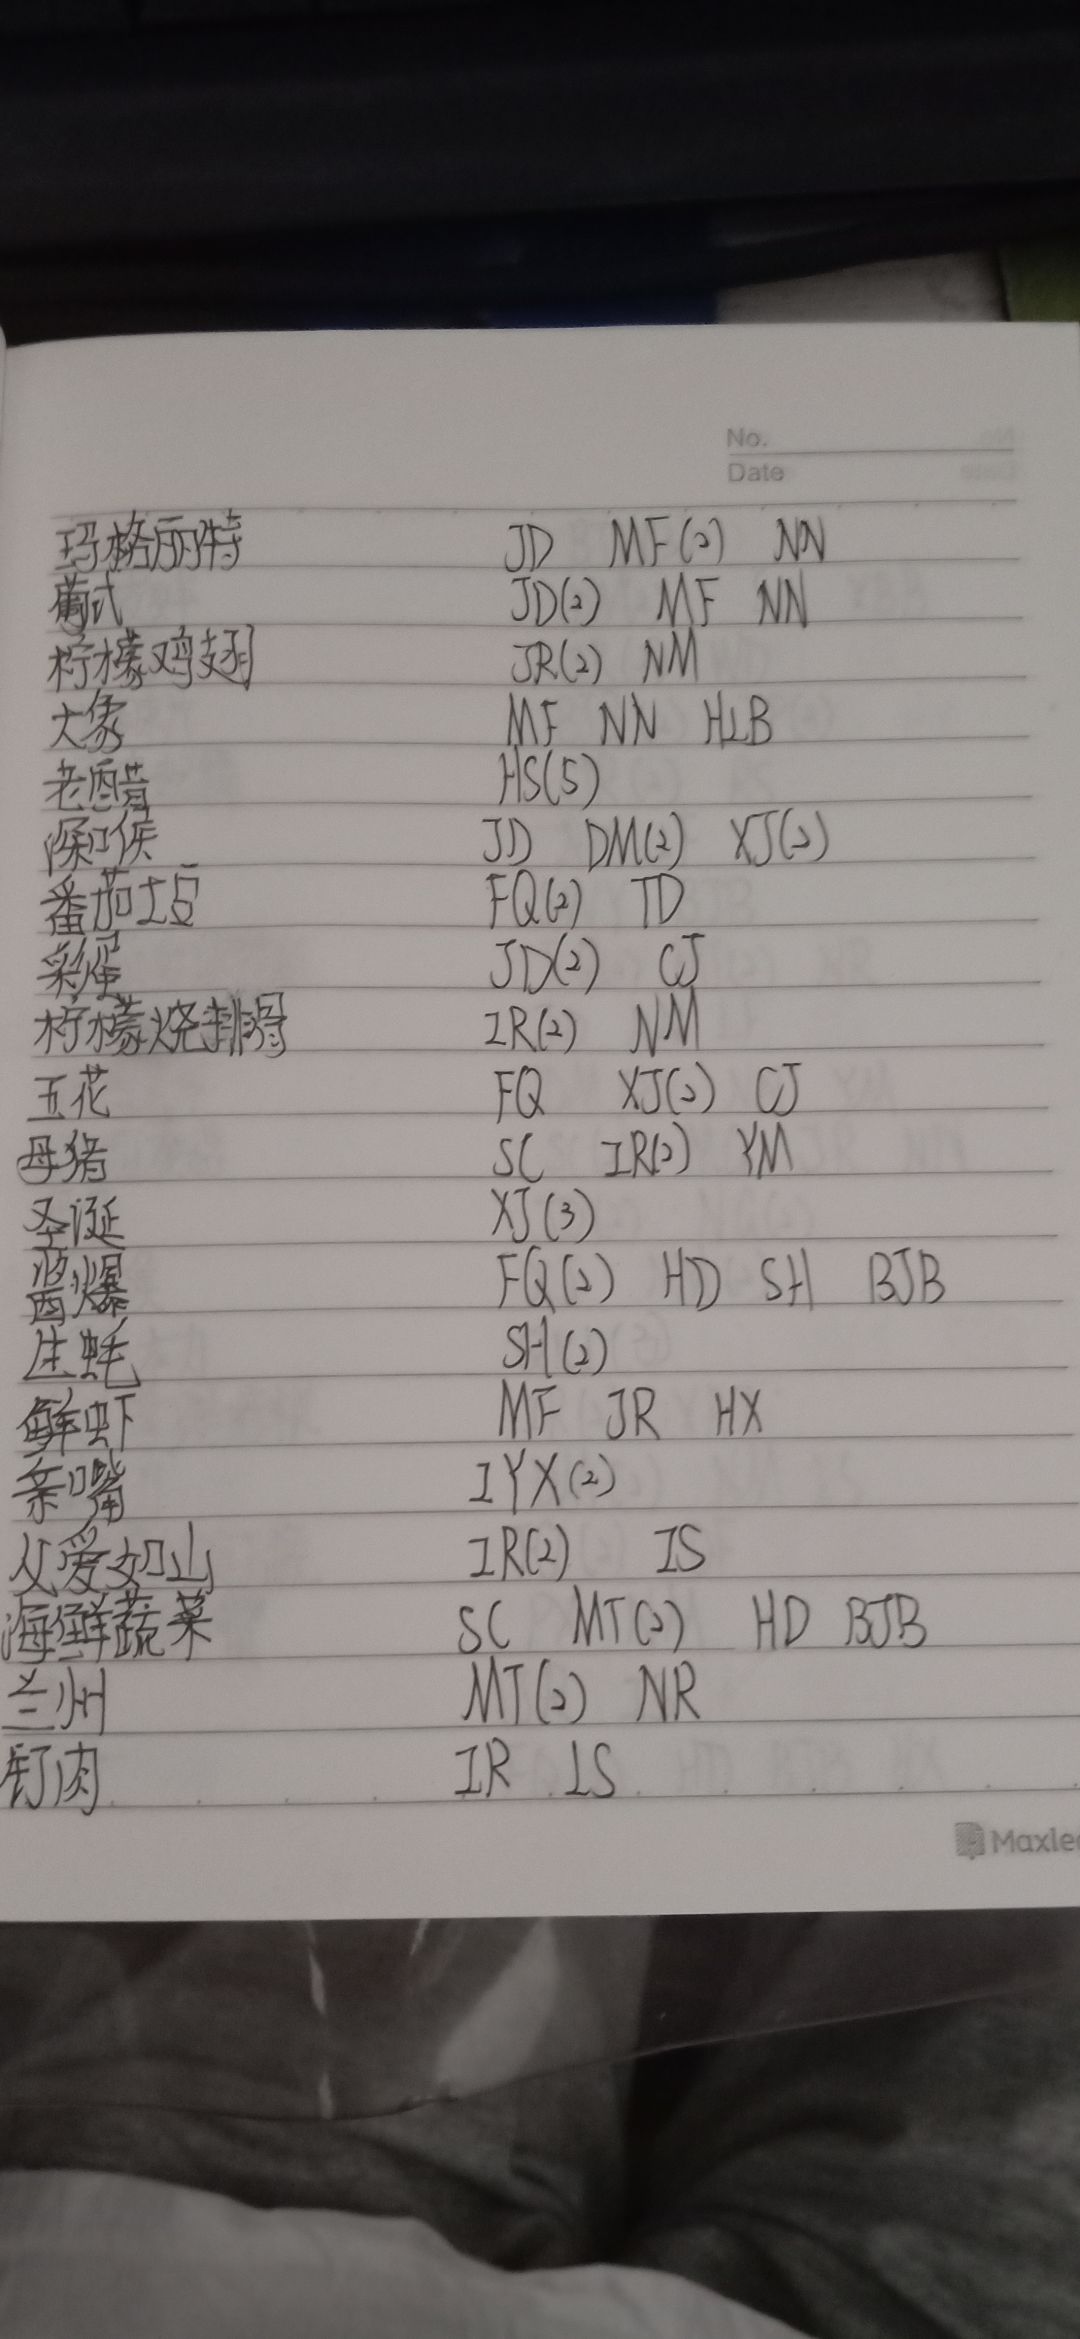 No.
Date
玛格丽特 JD MF(2) NN
葡式 JD(2) MF NN
柠檬鸡翅 JR(2) NM
大象 MF NN HLB
老醋 HS(5)
深口候 JD DM(2) XJ(2)
番茄土豆 FQ(2) TD
彩蛋 JD(2) CJ
柠檬烧排骨 IR(2) NM
五花 FQ XJ(2) CJ
母猪 SC IR(2) YM
圣诞 XJ(3)
酱爆 FQ(2) HD SH BJB
生蚝 SH(2)
鲜虾 MF JR HX
亲嘴 IYX(2)
父爱如山 IR(2) IS
海鲜蔬菜 SC MT(2) HD BJB
兰州 MT(2) NR
钉肉 IR IS